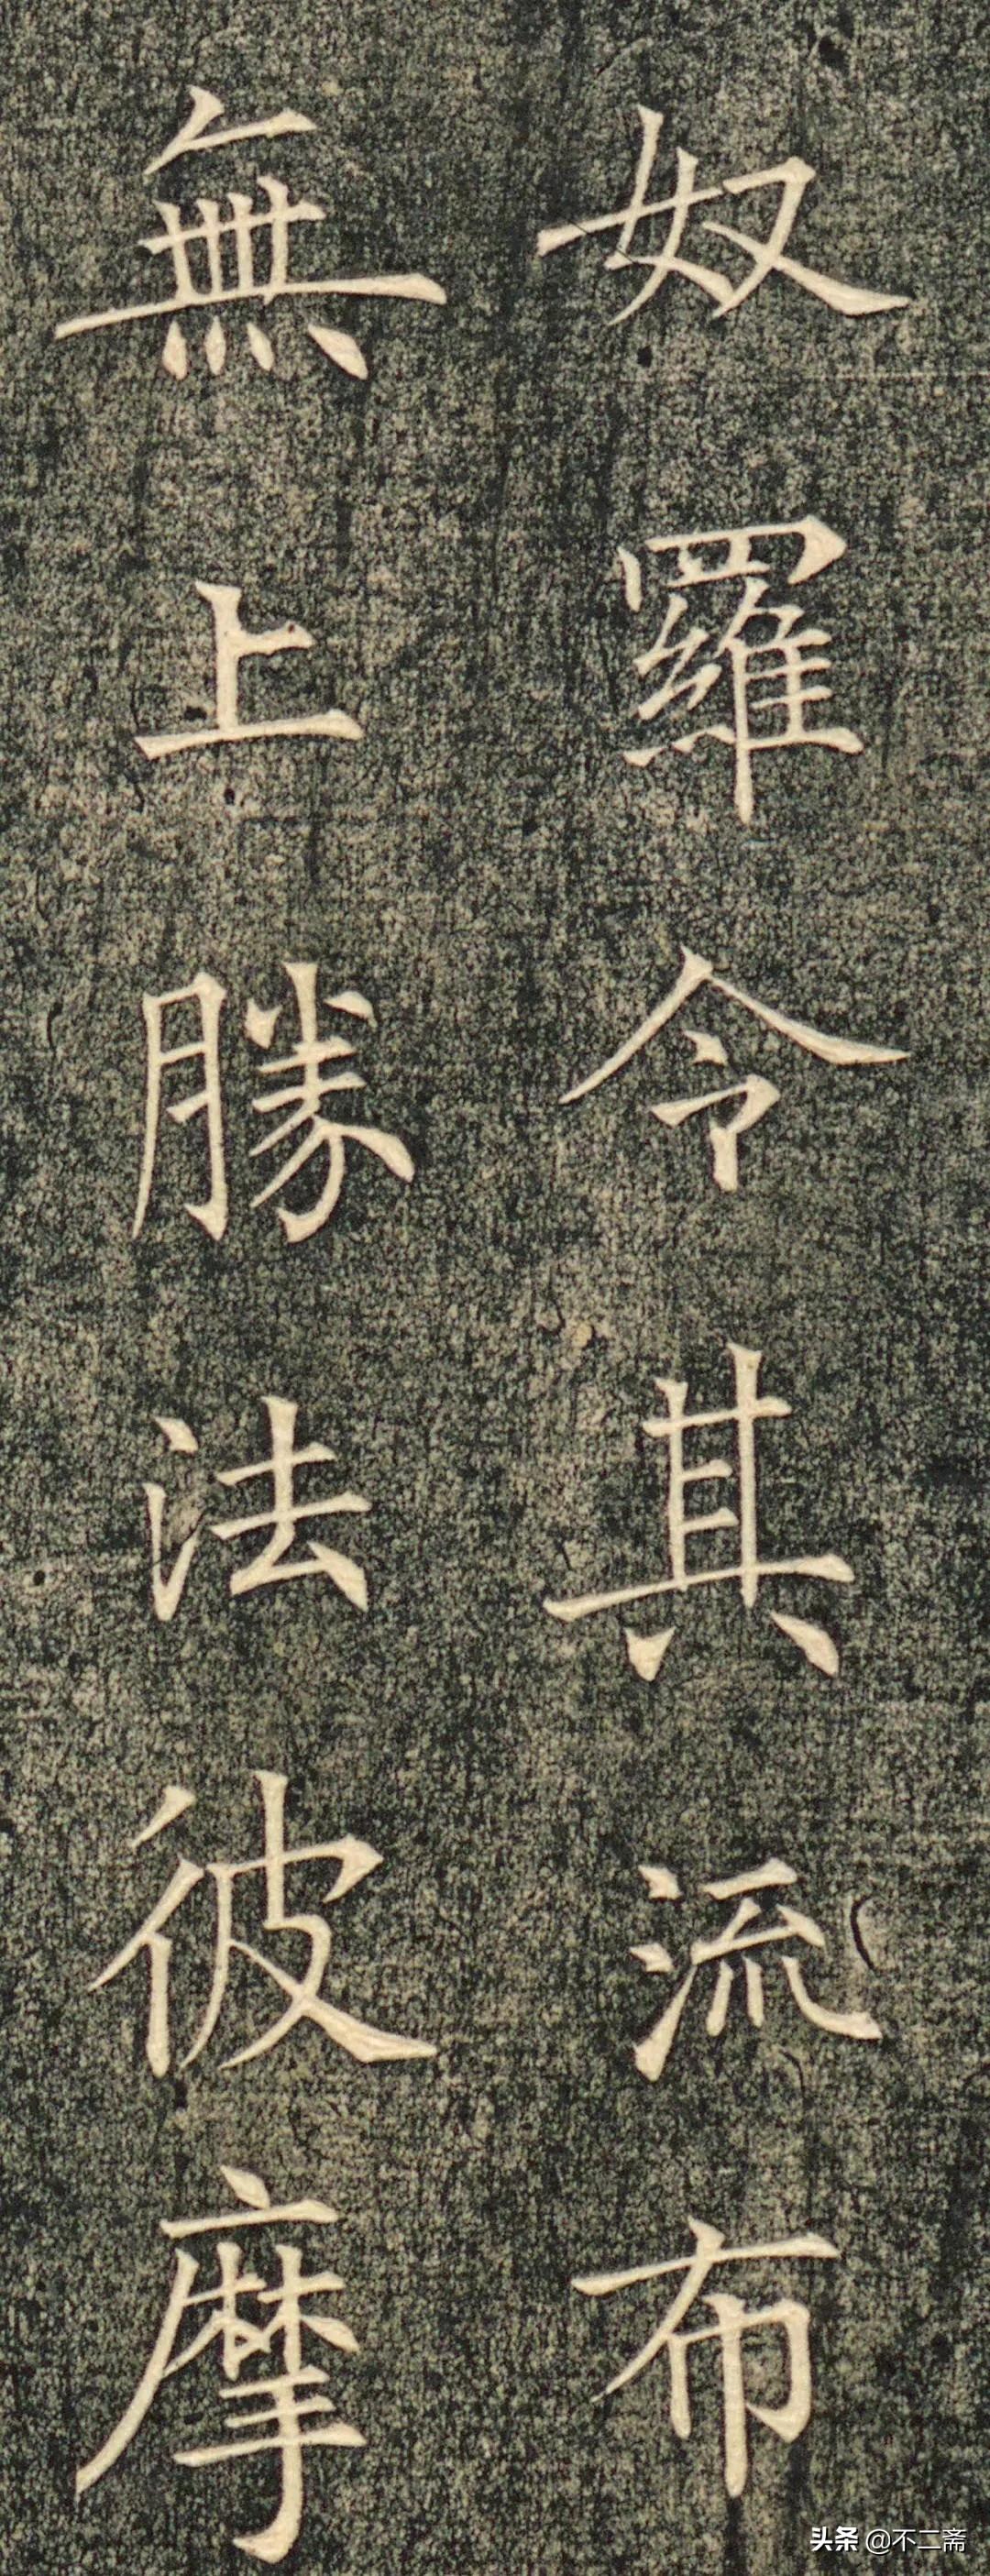 奴羅令其流布
無上勝法彼摩
头条 @不二斋